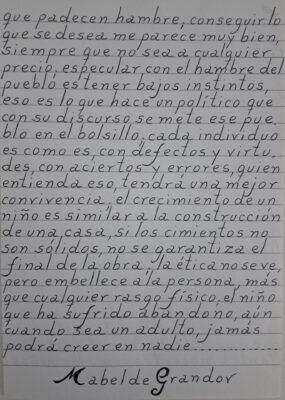 que padecen hambre, conseguir lo
que se desea me parece muy bien,
siempre que no sea a cualquier
precio, especular con el hambre del
pueblo es tener bajos instintos,
eso es lo que hace un político que
con su discurso se mete ese pue_
blo en el bolsillo, cada individuo
es como es, con defectos y virtu_
des, con aciertos y errores, quien
entienda eso, tendrá una mejor
convivencia, el crecimiento de un
niño es similar a la construcción
de una casa, si los cimientos no
son sólidos, no se garantiza el
final de la obra, la ética no se ve,
pero embellece a la persona, más
que cualquier rasgo físico, el niño
que ha sufrido abandono, aún
cuando sea un adulto, jamás
podrá creer en nadie..............
Mabel de Grandov